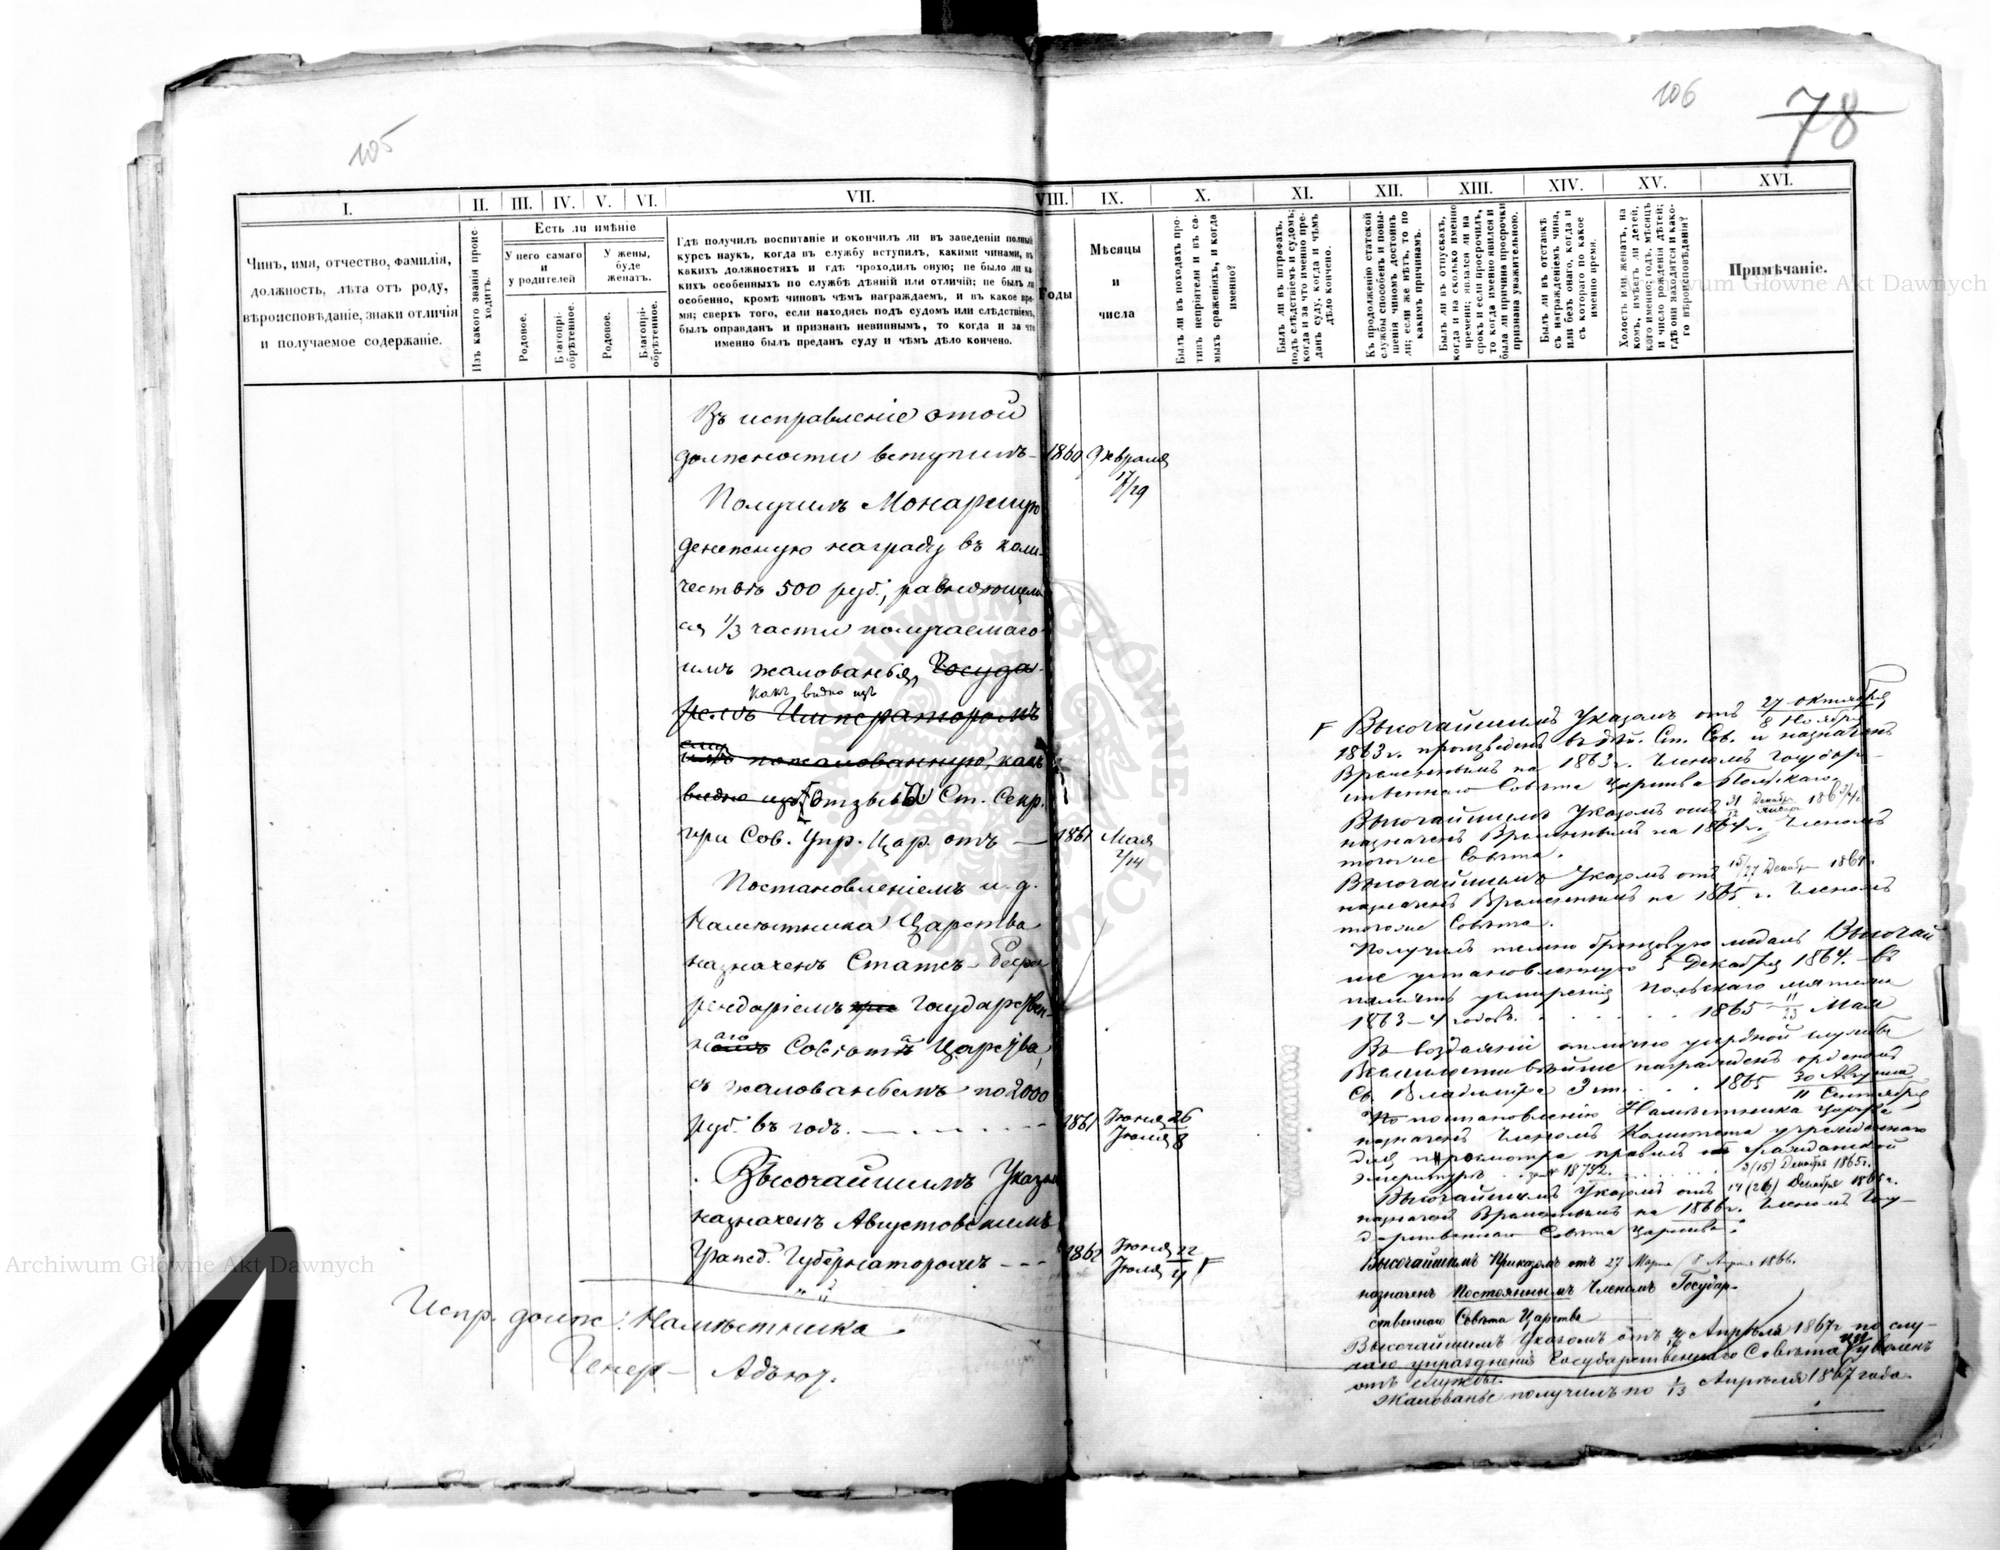 105
106
78
I.
II.
III.
IV.
V.
VI.
VII.
VIII.
IX.
X.
XI.
XII.
XIII.
XIV.
XV.
XVI.
Чинъ, имя, отчество, фамилія,
должность, лѣта отъ роду,
вѣроисповѣданіе, знаки отличія
и получаемое содержаніе.
Изъ какого званія проис-
ходитъ.
Есть ли имѣніе
У него самаго
и
у родителей
У жены,
буде
женатъ.
Родовое.
Благопрі-
обрѣтенное.
Родовое.
Благопрі-
обрѣтенное.
Гдѣ получилъ воспитаніе и окончилъ ли въ заведеніи полный
курсъ наукъ, когда въ службу вступилъ, какими чинами, въ
какихъ должностяхъ и гдѣ проходилъ оную; не было ли ка-
кихъ особенныхъ по службѣ дѣяній или отличій; не былъ ли
особенно, кромѣ чиновъ чѣмъ награждаемъ, и въ какое вре-
мя; сверхъ того, если находясь подъ судомъ или слѣдствіемъ,
былъ оправданъ и признанъ невиннымъ, то когда и за что
именно былъ преданъ суду и чѣмъ дѣло кончено.
Годы
Мѣсяцы
и
числа
Былъ ли въ походахъ про-
тивъ непріятеля и въ са-
мыхъ сраженіяхъ, и когда
именно?
Былъ ли въ штрафахъ,
подъ слѣдствіемъ и судомъ;
когда и за что именно пре-
данъ суду, когда и чѣмъ
дѣло кончено.
Къ продолженію статской
службы способенъ и повы-
шенія чиномъ достоинъ
ли; если же нѣтъ, то по
какимъ причинамъ.
Былъ ли въ отпускахъ,
когда и на сколько именно
времени; являлся ли на
срокъ и если просрочилъ,
то когда именно явился и
была ли причина просрочки
признана уважительною.
Былъ ли въ отставкѣ
съ награжденіемъ чина,
или безъ онаго, когда и
съ котораго по какое
именно время.
Холостъ или женатъ, на
комъ, имѣетъ ли дѣтей,
кого именно; годъ, мѣсяцъ
и число рожденія дѣтей;
гдѣ они находятся и како-
го вѣроисповѣданія?
Примѣчаніе.
Въ исправленіе этой
должности вступилъ — 1860 Февраля
17/29
Получилъ Монаршую
денежную награду въ коли-
чествѣ 500 руб., равняющую-
ся 1/3 части получаемаго
имъ жалованья, Госуда-
какъ видно изъ
ремъ Императоромъ
ему
пожалованную, какъ
видно изъ отзыва Ст. Секр.
при Сов. Упр. Цар. отъ — 1861 Мая
2/14
Постановленіемъ и. д.
Намѣстника Царства
назначенъ Статсъ-Рефе-
рендаріемъ Государствен-
наго Совѣта Царства,
съ жалованьемъ по 2000
руб. въ годъ. — 1861 Іюня 26
Іюля 8
Высочайшимъ Указомъ
назначенъ Августовскимъ
Гражд. Губернаторомъ — 1862 Іюня 22
Іюля 4
Испр. долж: Намѣстника
Генер-Адъют.
Высочайшимъ Указомъ отъ 27 Октября
8 Ноября
1863 г. произведенъ въ дѣй. Ст. Сов. и назначенъ
Временнымъ на 1863 г. Членомъ Государ-
ственнаго Совѣта Царства Польскаго.
Высочайшимъ Указомъ отъ 31 Декабря 1863/4 г.
назначенъ Временнымъ на 1864 г. Членомъ
того же Совѣта.
Высочайшимъ Указомъ отъ 15/27 Декабря 1864 г.
назначенъ Временнымъ на 1865 г. Членомъ
того же Совѣта.
Получилъ темно бронзовую медаль Высочай
ше установленную 5 Декабря 1864 — въ
память усмиренія Польскаго мятежа
1863–4 годовъ. . . . . 1865 11/23 Мая
Въ воздаяніи отлично усердной службы
Всемилостивѣйше награжденъ орденомъ
Св. Владиміра 3 ст. . . 1865 30 Августа
11 Сентября
По постановленію Намѣстника Царства
назначенъ Членомъ Комитета учрежденнаго
для пересмотра правилъ о гражданской
эмеритурѣ . . 3(15) Декабря 1865 г.
Высочайшимъ Указомъ отъ 14 (26) Декабря 1865 г.
назначенъ Временнымъ на 1866 г. Членомъ Госу-
дарственнаго Совѣта Царства.
Высочайшимъ Приказомъ отъ 27 Марта / 8 Апрѣля 1866.
назначенъ Постояннымъ Членомъ Государ-
ственнаго Совѣта Царства
Высочайшимъ Указомъ отъ Апрѣля 1867 г по слу-
чаю упраздненія Государственнаго Совѣта уволенъ
отъ службы.
Жалованье получилъ по 1/13 Апрѣля 1867 года.
Archiwum Główne Akt Dawnych
Archiwum Główne Akt Dawnych
ARCHIWUM GŁÓWNE AKT DAWNYCH